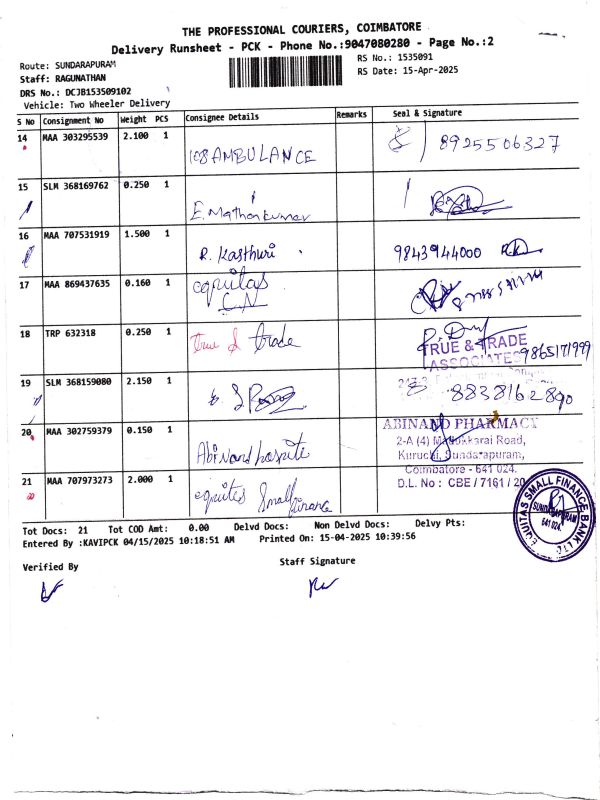 THE PROFESSIONAL COURIERS, COIMBATORE
Delivery Runsheet - PCK - Phone No.:9047080280 - Page No.:2
Route: SUNDARAPURAM
RS No.: 1535091
Staff: RAGUNATHAN
RS Date: 15-Apr-2025
DRS No.: DCJB153509102
Vehicle: Two Wheeler Delivery
S No Consignment No Weight PCS Consignee Details Remarks Seal & Signature
14 MAA 303295539 2.100 1 108 AMBULANCE 8925506327
15 SLM 368169762 0.250 1 E. Mathankumar
16 MAA 707531919 1.500 1 R. Kasthuri 9843944000
17 MAA 869437635 0.160 1 equitas
18 TRP 632318 0.250 1 True & trade
TRUE & TRADE
ASSOCIATES 9865171999
19 SLM 368159080 2.150 1 8838162890
20 MAA 302759379 0.150 1 Abinand
ABINAND PHARMACY
2-A (4) Madukkarai Road,
Kuruchi, Sundarapuram,
Coimbatore - 641 024.
D.L. No : CBE / 7161 / 20
21 MAA 707973273 2.000 1 equites Small finance
EQUITAS SMALL FINANCE BANK LTD
SUNDARAPURAM
641 024.
Tot Docs: 21 Tot COD Amt: 0.00 Delvd Docs: Non Delvd Docs: Delvy Pts:
Entered By :KAVIPCK 04/15/2025 10:18:51 AM Printed On: 15-04-2025 10:39:56
Verified By
Staff Signature